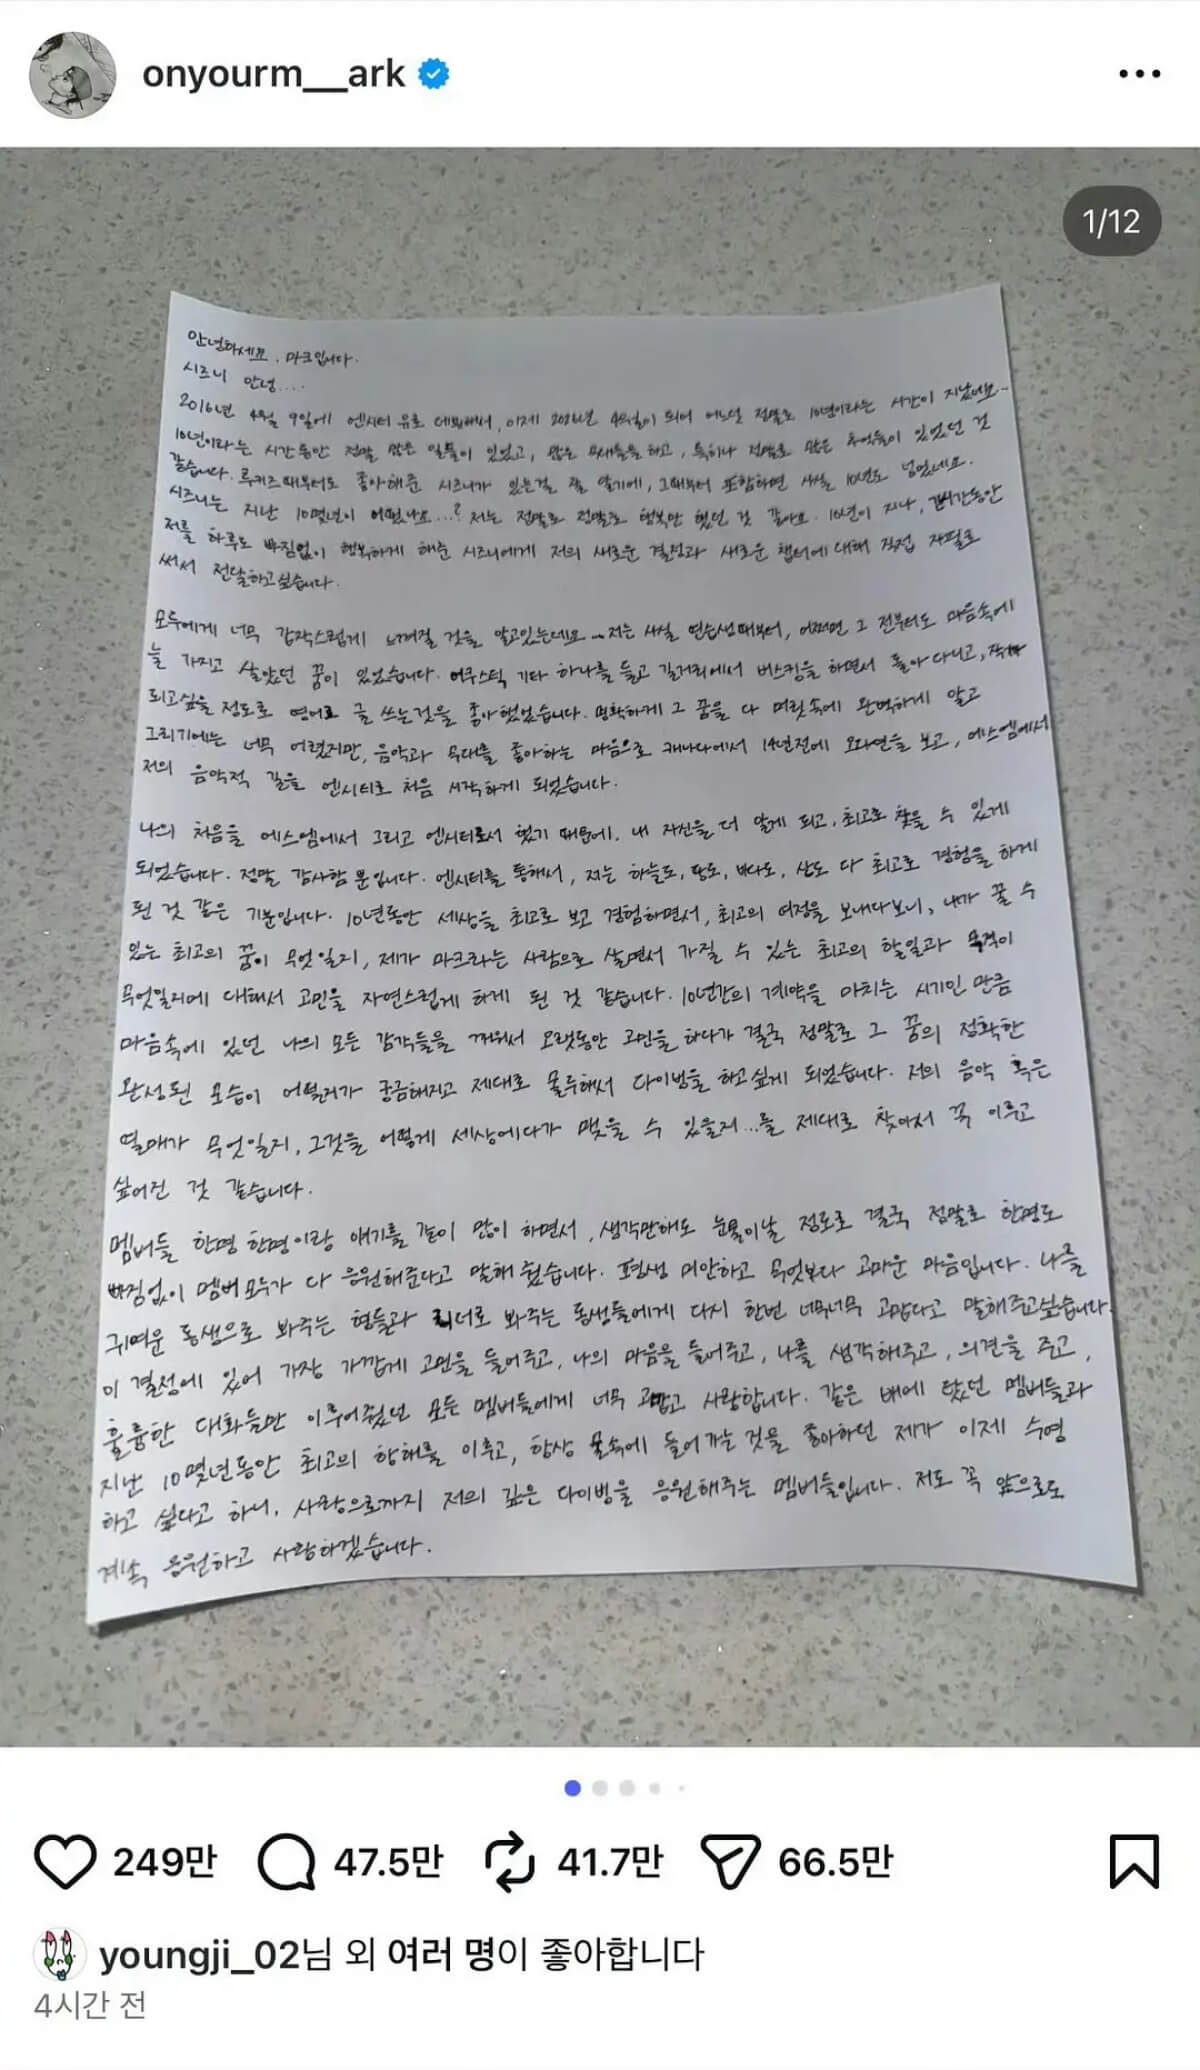 onyourm__ark
1/12
안녕하세요. 마크입니다.
시즈니 안녕....
2016년 4월 9일에 엔시티 유로 데뷔해서, 이제 2026년 4월이 되어 어느덧 정말로 10년이라는 시간이 지났네요..
10년이라는 시간동안 정말 많은 일들이 있었고, 많은 하고, 특히나 정말로 많은 추억들이 있었던 것
같습니다. 루키즈때부터도 좋아해준 시즈니가 있는걸 잘 알기에, 그때부터 포함하면 사실 10년도 넘었네요.
시즈니는 지난 10몇년이 어땠나요...? 저는 정말로 정말로 행복만 했던 것 같아요. 10년이 지나, 긴시간동안
저를 하루도 빠짐없이 행복하게 해준 시즈니에게 저의 새로운 결정과 새로운 챕터에 대해 직접 자필로
써서 전달하고싶습니다.
모두에게 너무 갑작스럽게 느껴질 것을 알고있는데요...저는 사실 연습생때부터, 어쩌면 그 전부터도 마음속에
늘 가지고 살았던 꿈이 있었습니다. 어쿠스틱 기타 하나를 들고 길거리에서 버스킹을 하면서 돌아다니고, 작가
되고싶을 정도로 영어로 글 쓰는것을 좋아했었습니다. 명확하게 그 꿈을 다 머릿속에 완벽하게 알고
그리기에는 너무 어렸지만, 음악과 무대를 좋아하는 마음으로 캐나다에서 14년전에 오디션을 보고, 에스엠에서
저의 음악적 길을 엔시티로 처음 시작하게 되었습니다.
나의 처음을 에스엠에서 그리고 엔시티로서 했기 때문에, 내 자신을 더 알게 되고, 최고로 찾을 수 있게
되었습니다. 정말 감사함 뿐입니다. 엔시티를 통해서, 저는 하늘도, 땅도, 바다도, 산도 다 최고로 경험을 하게
된 것 같은 기분입니다. 10년동안 세상을 최고로 보고 경험하면서, 최고의 여정을 보내다보니, 내가 꿀 수
있는 최고의 꿈이 무엇일지, 제가 마크라는 사람으로 살면서 가질 수 있는 최고의 할일과 목적이
무엇일지에 대해서 고민을 자연스럽게 하게 된 것 같습니다. 10년간의 계약을 마치는 시기인 만큼
마음속에 있던 나의 모든 감각들을 깨워서 오랫동안 고민을 하다가 결국 정말로 그 꿈의 정확한
완성된 모습이 어떨런가 궁금해지고 제대로 몰두해서 다이빙을 하고싶게 되었습니다. 저의 음악 혹은
열매가 무엇일지, 그것을 어떻게 세상에다가 맺을 수 있을지...를 제대로 찾아서 꼭 이루고
싶어진 것 같습니다.
멤버들 한명 한명이랑 얘기를 같이 많이 하면서, 생각만해도 눈물이날 정도로 결국 정말로 한명도
빠짐없이 멤버모두가 다 응원해준다고 말해줬습니다. 평생 미안하고 무엇보다 고마운 마음입니다. 나를
귀여운 동생으로 봐주는 형들과 리더로 봐주는 동생들에게 다시 한번 너무너무 고맙다고 말해주고싶습니다.
이 결정에 있어 가장 가깝게 고민을 들어주고, 나의 마음을 들어주고, 나를 생각해주고, 의견을 주고,
훌륭한 대화들만 이루어줬던 모든 멤버들에게 너무 고맙고 사랑합니다. 같은 배에 탔던 멤버들과
지난 10몇년동안 최고의 항해를 이루고, 항상 물속에 들어가는 것을 좋아하던 제가 이제 수영
하고 싶다고 하니, 사랑으로까지 저의 깊은 다이빙을 응원해주는 멤버들입니다. 저도 꼭 앞으로도
계속 응원하고 사랑하겠습니다.
249만 47.5만 41.7만 66.5만
youngji_02님 외 여러 명이 좋아합니다
4시간 전